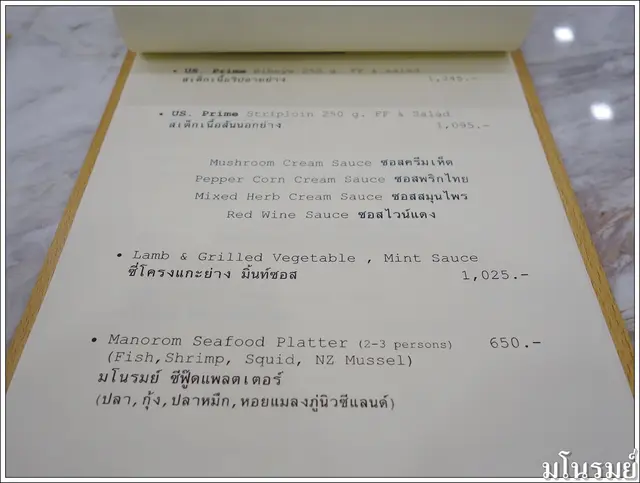 • US. Prime Ribeye 250 g. FF & Salad
สเต็กเนื้อริบอายย่าง 1,395.-
• US. Prime Striploin 250 g. FF & Salad
สเต็กเนื้อสันนอกย่าง 1,095.-
Mushroom Cream Sauce ซอสครีมเห็ด
Pepper Corn Cream Sauce ซอสพริกไทย
Mixed Herb Cream Sauce ซอสสมุนไพร
Red Wine Sauce ซอสไวน์แดง
• Lamb & Grilled Vegetable , Mint Sauce
ซี่โครงแกะย่าง มิ้นท์ซอส 1,025.-
• Manorom Seafood Platter (2-3 persons) 650.-
(Fish,Shrimp, Squid, NZ Mussel)
มโนรมย์ ซีฟู๊ดแพลตเตอร์
(ปลา,กุ้ง,ปลาหมึก,หอยแมลงภู่นิวซีแลนด์)
มโนรมย์